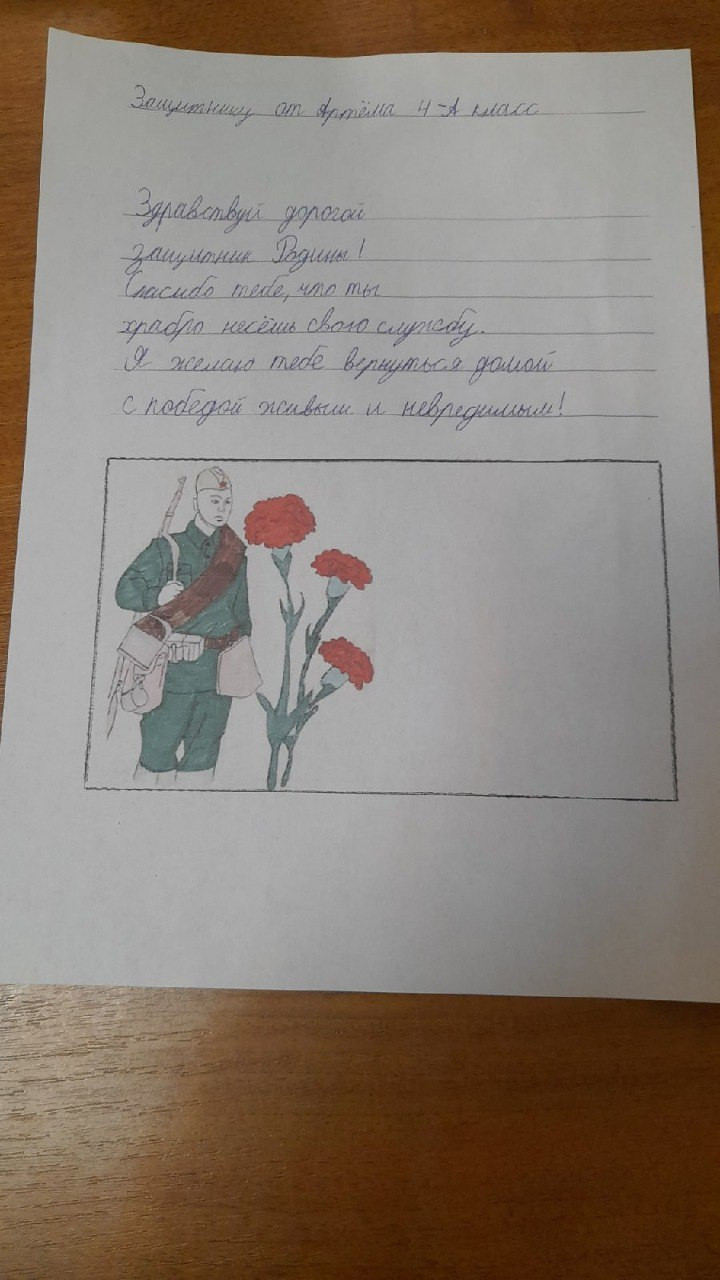 Защитнику от Артёма 4-А класс
Здравствуй дорогой
защитник Родины!
Спасибо тебе, что ты
храбро несёшь свою службу.
Я желаю тебе вернуться домой
с победой живым и невредимым!